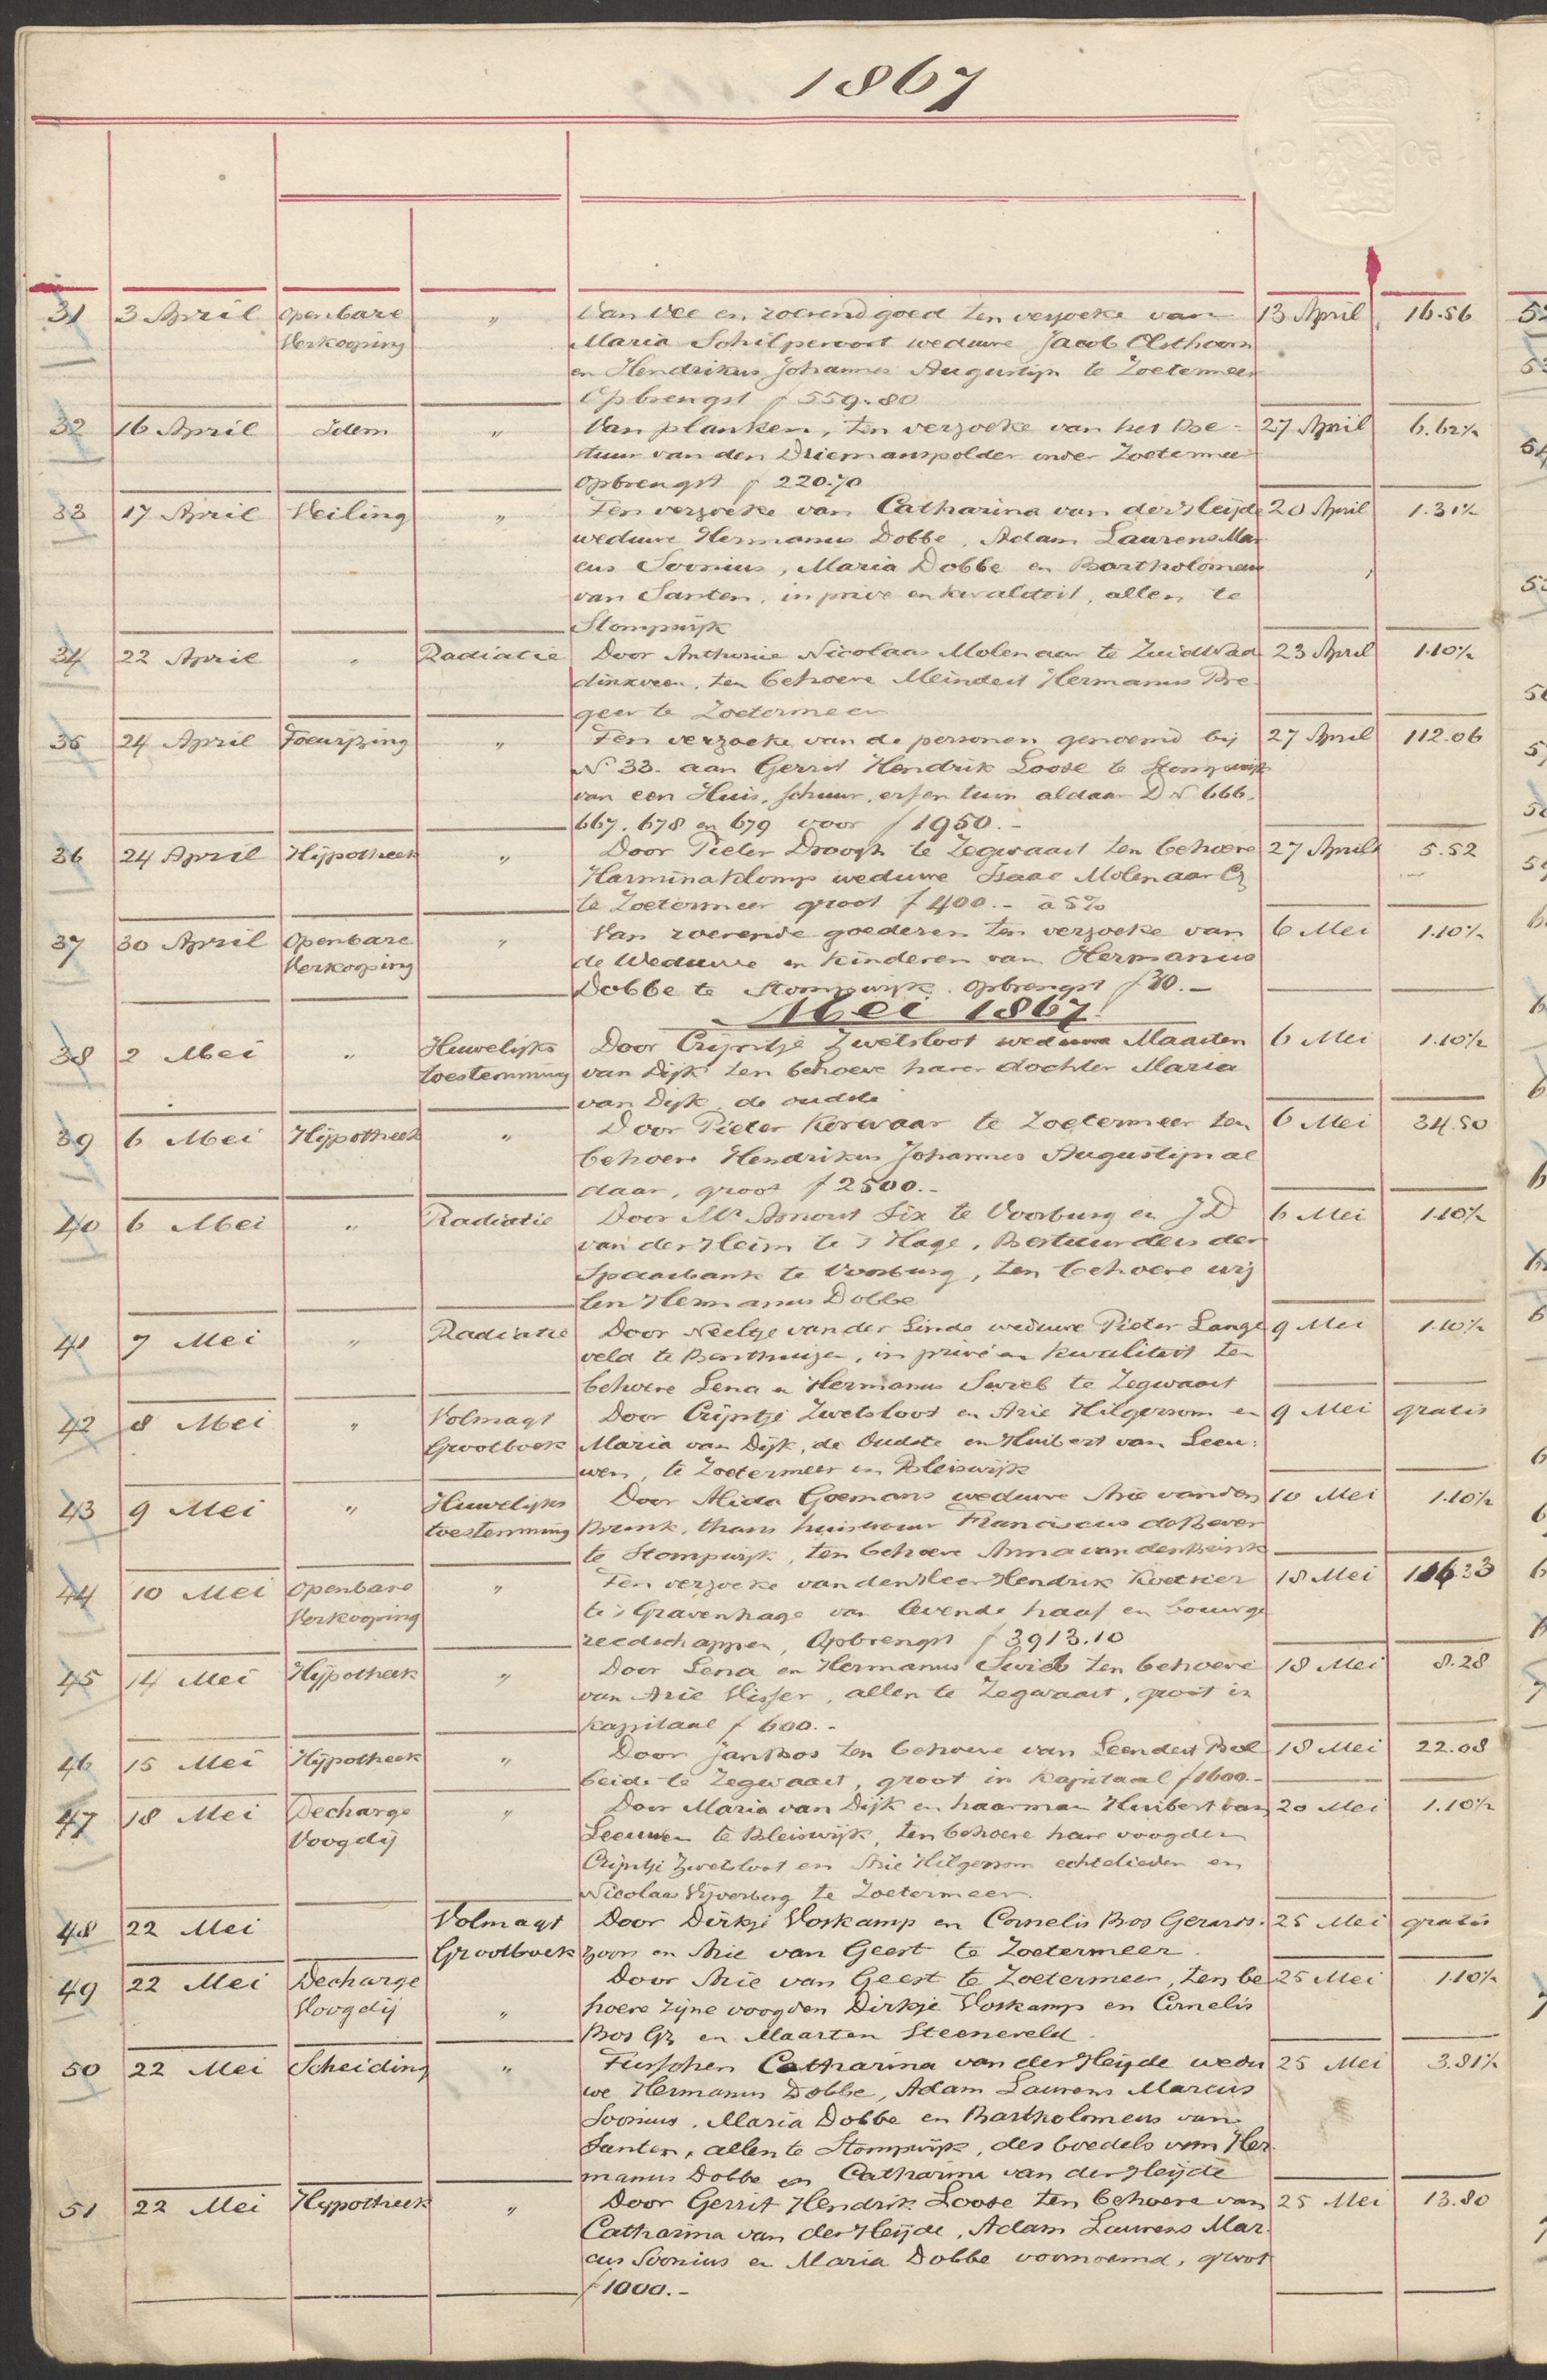 1867
31 3 April Openbare " Van Vee en roerend goed ten verzoeke van 13 April 16.56
Verkooping Maria Schilpervoort weduwe Jacob Olsthoorn
en Hendrikus Johannes Augustijn te Zoetermeer
Opbrengst f 559.80
32 16 April Idem " Van planken, ten verzoeke van het Be- 27 April 6.62½
stuur van den Driemanspolder onder Zoetermeer
opbrengst f 220.70
33 17 April Veiling " Ten verzoeke van Catharina van der Heijde 20 April 1.31½
weduwe Hermanus Dobbe, Adam Laurens Mar
cus Soonius, Maria Dobbe en Bartholomeus
van Santen, in privé en kwaliteit, allen te
Stompwijk
34 22 April " Radiatie Door Anthonie Nicolaas Molenaar te Zuidwad 23 April 1.10½
dinxveen, ten behoeve Meindert Hermanus Bre
geer te Zoetermeer
35 24 April Toewijzing " Ten verzoeke van de personen genoemd bij 27 April 112.06
N° 33. aan Gerrit Hendrik Loose te Stompwijk
van een Huis, schuur, erf en tuin aldaar D N° 666.
667. 678 en 679 voor f 1950.-
36 24 April Hijpotheek " Door Pieter Droogh te Zegwaart ten behoeve 27 April 5.52
Harmina Klomp weduwe Isaac Molenaar Cz
te Zoetermeer groot f 400.- à 5%
37 30 April Openbare " Van roerende goederen ten verzoeke van 6 Mei 1.10½
Verkooping de Weduwe en kinderen van Hermanus
Dobbe te Stompwijk. opbrengst f 30.-
Mei 1867.
38 2 Mei " Huwelijks Door Crijntje Zwetsloot weduwe Maarten 6 Mei 1.10½
toestemming van Dijk ten behoeve harer dochter Maria
van Dijk de oudste
39 6 Mei Hijpotheek " Door Pieter Korevaar te Zoetermeer ten 6 Mei 34.50
behoeve Hendrikus Johannes Augustijn al
daar, groot f 2500.-
40 6 Mei " Radiatie Door Mr Arnout Six te Voorburg en J D 6 Mei 1.10½
van der Heim te 's Hage, Bestuurders der
Spaarbank te Voorburg, ten behoeve wij
len Hermanus Dobbe
41 7 Mei " Radiatie Door Neeltje van der Linde weduwe Pieter Lange 9 Mei 1.10½
veld te Benthuizen, in privé en kwaliteit ten
behoeve Lena en Hermanus Swieb te Zegwaart
42 8 Mei " Volmagt Door Crijntje Zwetsloot en Arie Hilgersom en 9 Mei gratis
Grootboek Maria van Dijk, de Oudste en Huibert van Leeu:
wen, te Zoetermeer en Bleiswijk
43 9 Mei " Huwelijks Door Alida Goemans weduwe Arie van den 10 Mei 1.10½
toestemming Brink, thans huisvrouw Franciscus de Bever
te Stompwijk, ten behoeve Anna van den Brink
44 10 Mei Openbare " Ten verzoeke van den Heer Hendrik Koetsier 18 Mei 116.33
Verkooping te 's Gravenhage van levende haaf en bouwge
reedschappen, Opbrengst f 3913.10
45 14 Mei Hijpotheek " Door Lena en Hermanus Swieb ten behoeve 18 Mei 8.28
van Arie Visser, allen te Zegwaart, groot in
kapitaal f 600.-
46 15 Mei Hijpotheek " Door Jan Bos ten behoeve van Leendert Bol 18 Mei 22.08
beide te Zegwaart, groot in kapitaal f 1600.-
47 18 Mei Decharge " Door Maria van Dijk en haar man Huibert van 20 Mei 1.10½
Voogdij Leeuwen te Bleiswijk, ten behoeve hare voogden
Crijntje Zwetsloot en Arie Hilgersom echtelieden en
Nicolaas Vijverberg te Zoetermeer.
48 22 Mei Volmagt Door Dirkje Voskamp en Cornelis Bos Gerards. 25 Mei gratis
Grootboek zoon en Arie van Geest te Zoetermeer.
49 22 Mei Decharge Door Arie van Geest te Zoetermeer, ten be 25 Mei 1.10½
Voogdij " hoeve zijne voogden Dirkje Voskamp en Cornelis
Bos Gz en Maarten Steeneveld.
50 22 Mei Scheiding " Tusschen Catharina van der Heijde wedu 25 Mei 3.81½
we Hermanus Dobbe, Adam Laurens Marcus
Soonius, Maria Dobbe en Bartholomeus van
Santen, allen te Stompwijk, des boedels van Her
manus Dobbe en Catharina van der Heijde
51 22 Mei Hypotheek " Door Gerrit Hendrik Loose ten behoeve van 25 Mei 13.80
Catharina van der Heijde, Adam Laurens Mar
cus Soonius en Maria Dobbe voornoemd, groot
f 1000.-